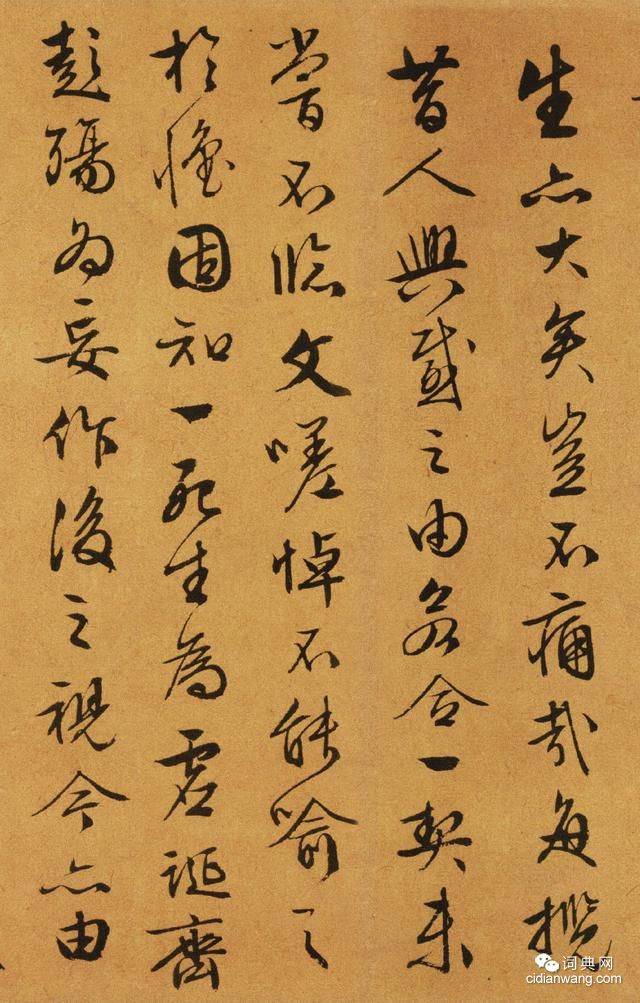 生亦大矣豈不痛哉每攬
昔人興感之由若合一契未
嘗不臨文嗟悼不能喻之
於懷固知一死生為虛誕齊
彭殤為妄作後之視今亦由
词典网
cidianwang.com